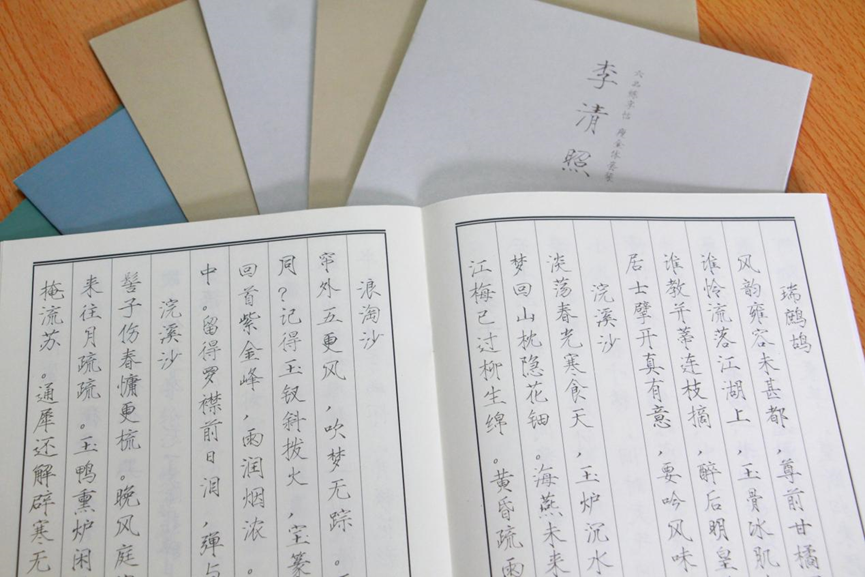 李清照
六品练字帖 瘦金体
瑞鹧鸪
风韵雍容未甚都,尊前甘橘
谁怜流落江湖上,玉骨冰肌
谁教并蒂连枝摘,醉后明皇
居士擘开真有意,要吟风味
浣溪沙
淡荡春光寒食天,玉炉沉水
梦回山枕隐花钿。海燕未来
江梅已过柳生绵。黄昏疏雨
浪淘沙
帘外五更风,吹梦无踪。
同?记得玉钗斜拨火,宝篆
回首紫金峰,雨润烟浓。
中。留得罗襟前日泪,弹与
浣溪沙
髻子伤春慵更梳。晚风庭
来往月疏疏。玉鸭熏炉闲
掩流苏。通犀还解辟寒无